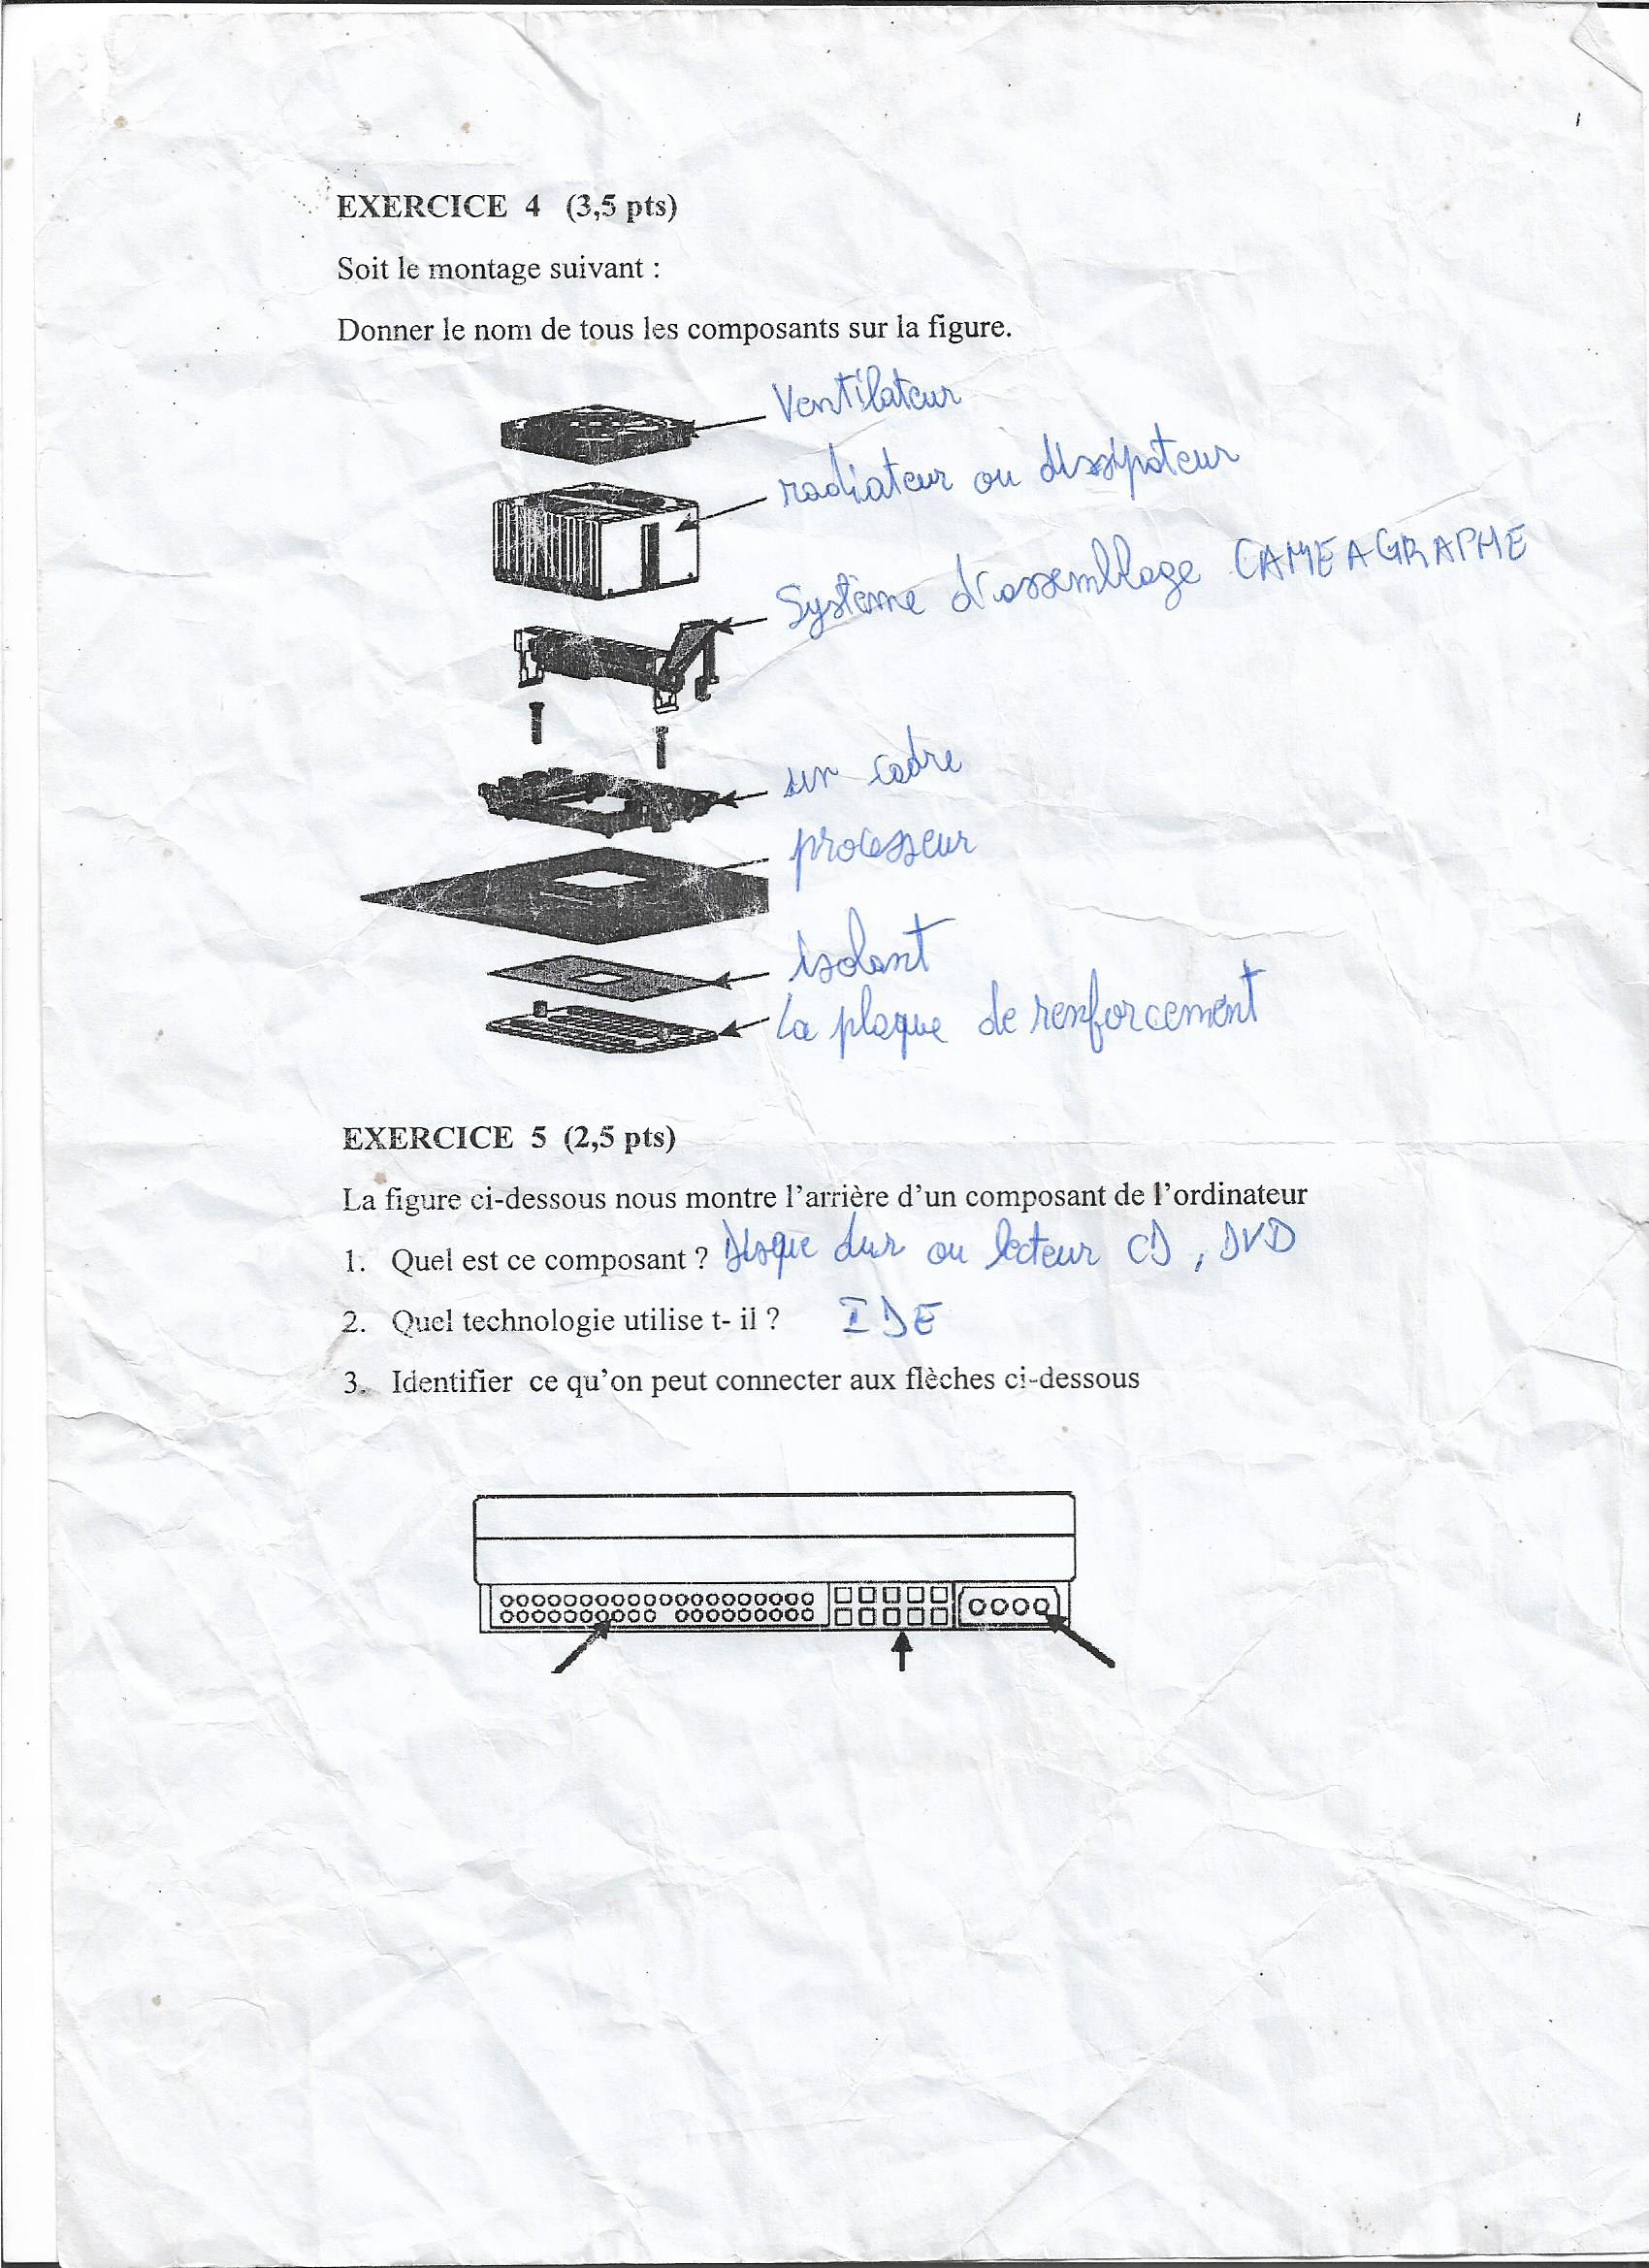 EXERCICE 4 (3,5 pts)
Soit le montage suivant :
Donner le nom de tous les composants sur la figure.
Ventilateur
radiateur ou dissipateur
Système d'assemblage CAMEAGRAPHE
un cadre
processeur
isolant
La plaque de renforcement
EXERCICE 5 (2,5 pts)
La figure ci-dessous nous montre l'arrière d'un composant de l'ordinateur
1. Quel est ce composant ? Disque dur ou lecteur CD, DVD
2. Quel technologie utilise t- il ? IDE
3. Identifier ce qu'on peut connecter aux flèches ci-dessous